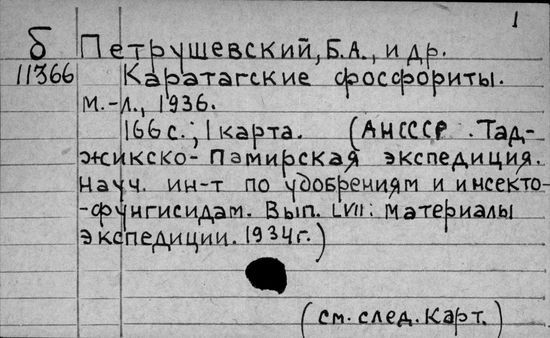 1
б Петрушевский, Б.А., и др.
11366 Каратагские фосфориты.
М.-Л., 1936.
166 с.; 1 карта. (АНСССР. Тад-
жикско-Памирская экспедиция.
Науч. ин-т по удобрениям и инсекто-
-фунгисидам. Вып. LVII: Материалы
экспедиции. 1934г.)
(см. след. карт.)